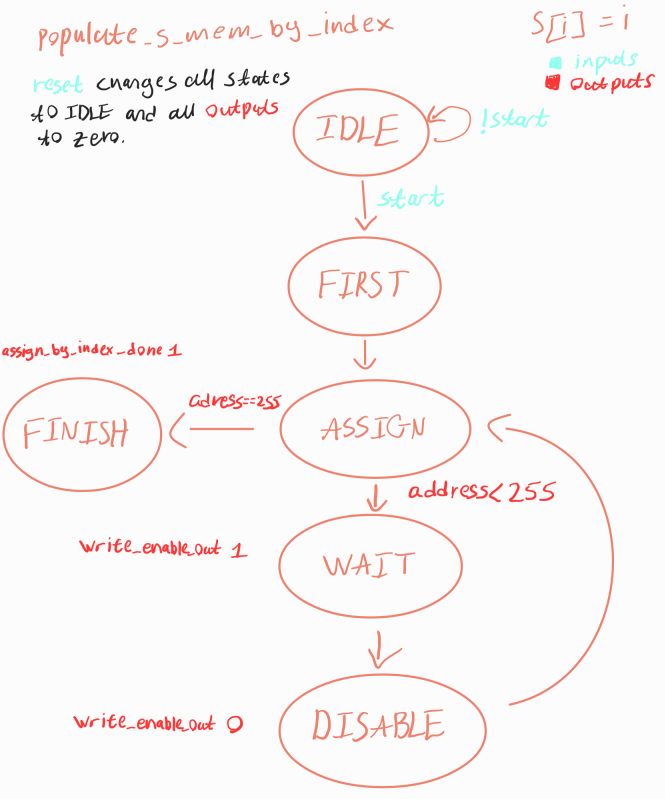 populate_s_mem_by_index
S[i] = i
inputs
outputs
reset changes all states
to IDLE and all outputs
to zero.
IDLE
!start
start
FIRST
assign_by_index_done 1
adress==255
FINISH
ASSIGN
address<255
write_enable_out 1
WAIT
write_enable_out 0
DISABLE